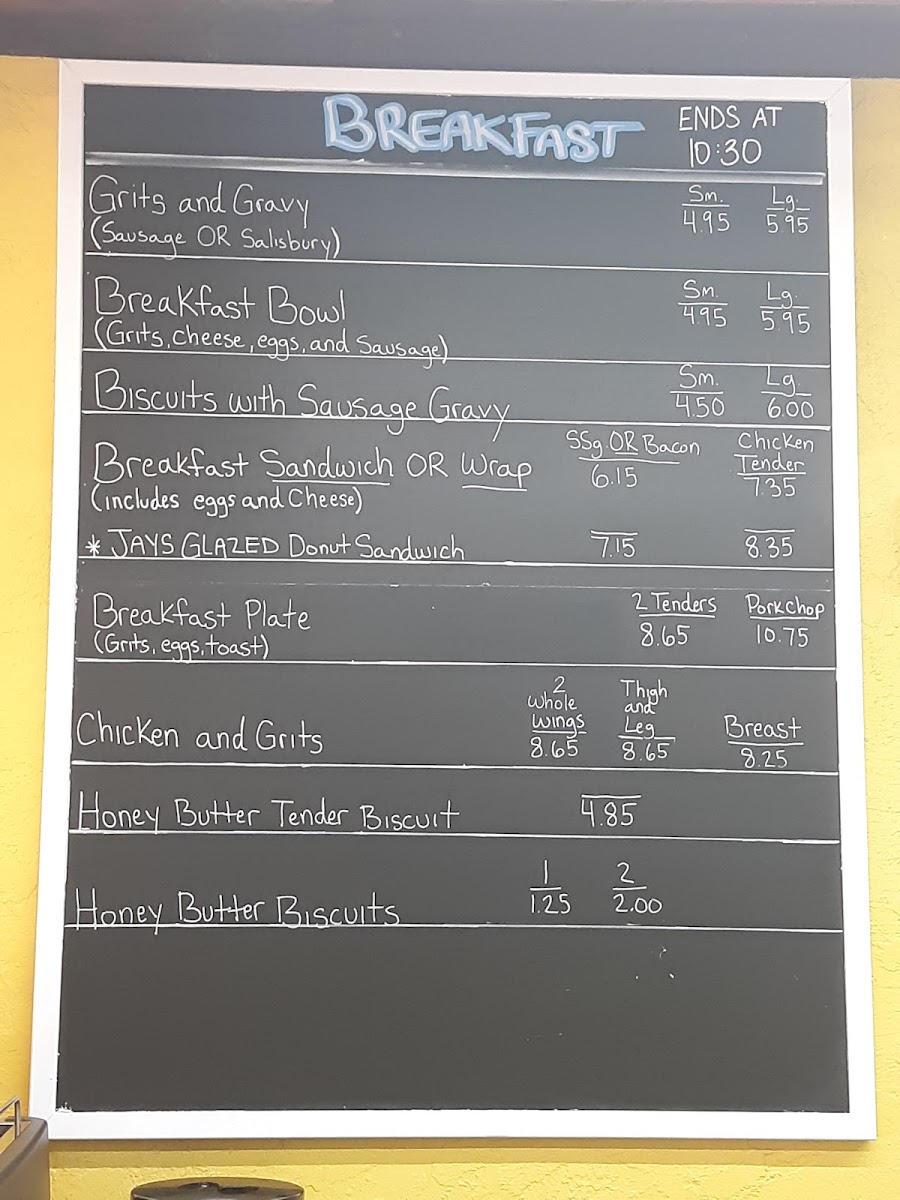 BREAKFAST ENDS AT
10:30
Grits and Gravy Sm. Lg.
(Sausage OR Salisbury) 4.95 5.95
Breakfast Bowl Sm. Lg.
(Grits, cheese, eggs, and Sausage) 4.95 5.95
Sm. Lg.
Biscuits with Sausage Gravy 4.50 6.00
SSg. OR Bacon Chicken Tender
Breakfast Sandwich OR Wrap 6.15 7.35
(includes eggs and Cheese)
* JAYS GLAZED Donut Sandwich 7.15 8.35
Breakfast Plate 2 Tenders Porkchop
(Grits, eggs, toast) 8.65 10.75
2 whole wings Thigh and Leg Breast
Chicken and Grits 8.65 8.65 8.25
Honey Butter Tender Biscuit 4.85
1 2
Honey Butter Biscuits 1.25 2.00